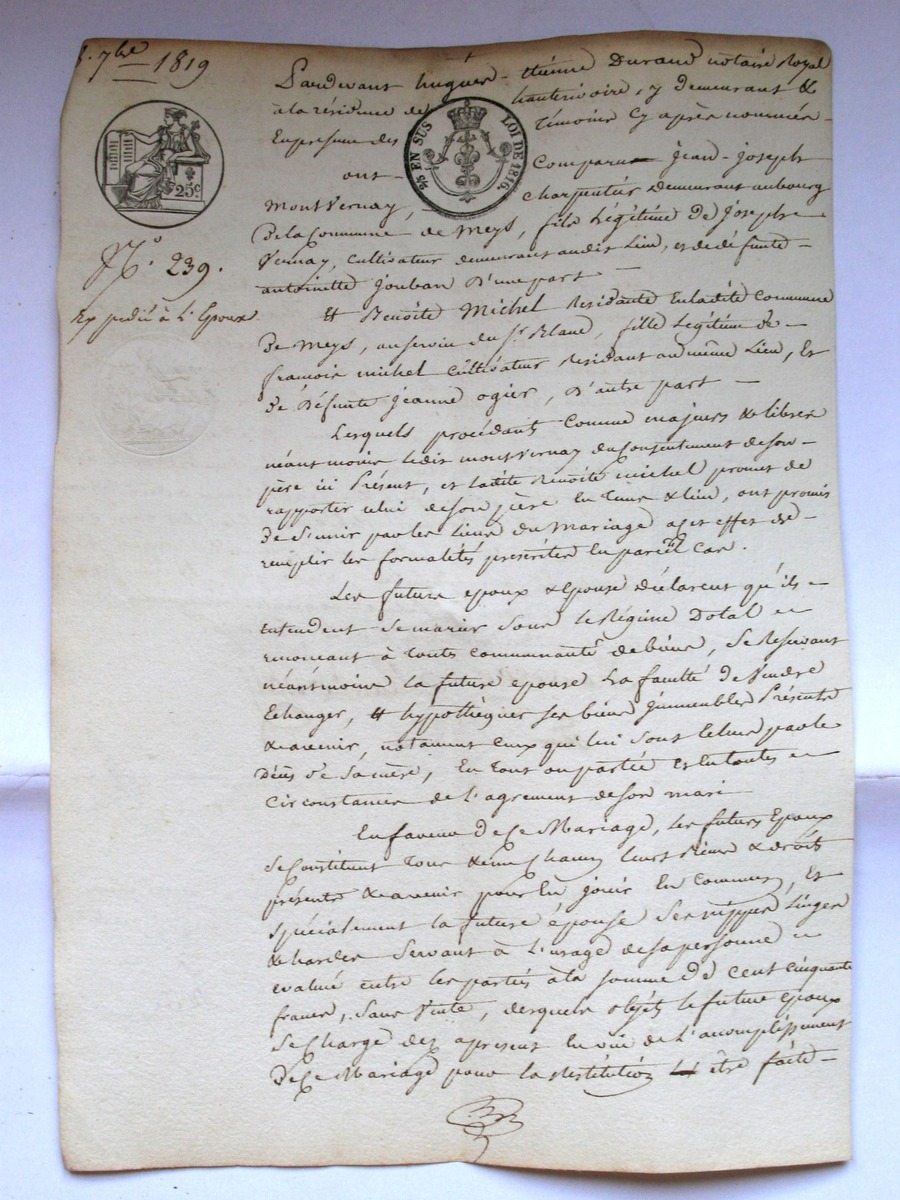 5. 7bre 1819
Pardevant hugues-étienne Durand notaire Royal
à la résidence de hauterivoire, y demeurant &
En présence des témoins Cy après nommés -
ont - Comparu jean-joseph
MontVernay, - charpentier demeurant au bourg
De la Commune de Meys, fils légitime de joseph
Vernay, Cultivateur demeurant audit Lieu, et de défunte
antoinette jouban D'une part -
Et Benoîte Michel Residante En ladite Commune
De Meys, au servin du Sr. Blanc, fille légitime de -
françois michel Cultivateur Residant au même Lieu, Et
de Défunte jeanne ogier, D'autre part -
Lesquels procédants Comme majeurs & libres
néantmoins ledit montvernay du Consentement de son -
père ici Présent, et ladite Benoîte michel promet de
rapporter celui de son père En tems & lieu, ont promis
de S'unir par les liens du Mariage a cet effet de -
remplir les formalités prescrites En pareil Cas.
Les futurs epoux & epouse Déclarent qu'ils -
Entendent se marier sous le Régime Dotal =
renonceant à toute Communauté de biens, Se Reservant
néantmoins la future epouse La faculté de Vendre
Echanger, Et hypothéquer ses biens jmmeubles Présents
& avenir, notament Ceux qui lui sont Echus par le
Décès de Sa mère, En tout ou partie Et En toutes =
Circonstances de L'agrement de son mari -
En faveur De Ce Mariage, Les futurs Epoux
se Constituent Tous & un Chacun leurs Biens & droits
présents & avenir pour En jouir En Commun, Et
spécialement la future épouse Ses nippes Linges
& hardes Servant à L'usage de sa personne =
evalué entre les parties à la somme de Cent Cinquante
francs, Sans Vente, desquels objets le future epoux
Se Charge dez apresent En vüe de L'accomplissement
De Ce Mariage pour la Restitution être faite -
25c.
25 EN SUS LOI DE 1816.
N°. 239.
Expédié à L'Epoux